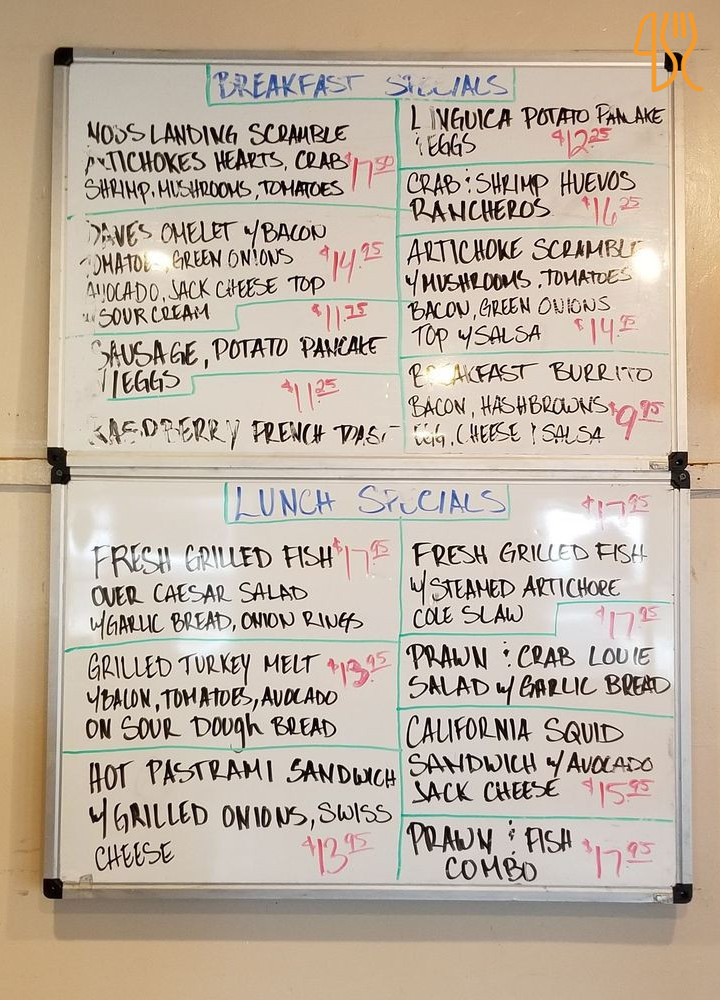 BREAKFAST SPECIALS
MOSS LANDING SCRAMBLE
ARTICHOKES HEARTS, CRAB $17.50
SHRIMP, MUSHROOMS, TOMATOES
DAVES OMELET W/BACON
TOMATOES, GREEN ONIONS $14.95
AVOCADO, JACK CHEESE TOP
W/ SOUR CREAM
$11.75
SAUSAGE, POTATO PANCAKE
/EGGS
$11.25
RASPBERRY FRENCH TOAST
LINGUICA POTATO PANCAKE
& EGGS $12.25
CRAB & SHRIMP HUEVOS
RANCHEROS $16.25
ARTICHOKE SCRAMBLE
W/MUSHROOMS, TOMATOES
BACON, GREEN ONIONS
TOP W/SALSA $14.95
BREAKFAST BURRITO
BACON, HASHBROWNS $9.95
EGG, CHEESE & SALSA
LUNCH SPECIALS
FRESH GRILLED FISH $17.95
OVER CAESAR SALAD
W/GARLIC BREAD, ONION RINGS
GRILLED TURKEY MELT $13.95
W/BACON, TOMATOES, AVOCADO
ON SOUR DOUGH BREAD
HOT PASTRAMI SANDWICH
W/GRILLED ONIONS, SWISS
CHEESE $13.95
$17.95
FRESH GRILLED FISH
W/STEAMED ARTICHOKE
COLE SLAW
$17.95
PRAWN & CRAB LOUIE
SALAD W/ GARLIC BREAD
CALIFORNIA SQUID
SANDWICH W/AVOCADO
JACK CHEESE $15.95
PRAWN & FISH $17.95
COMBO